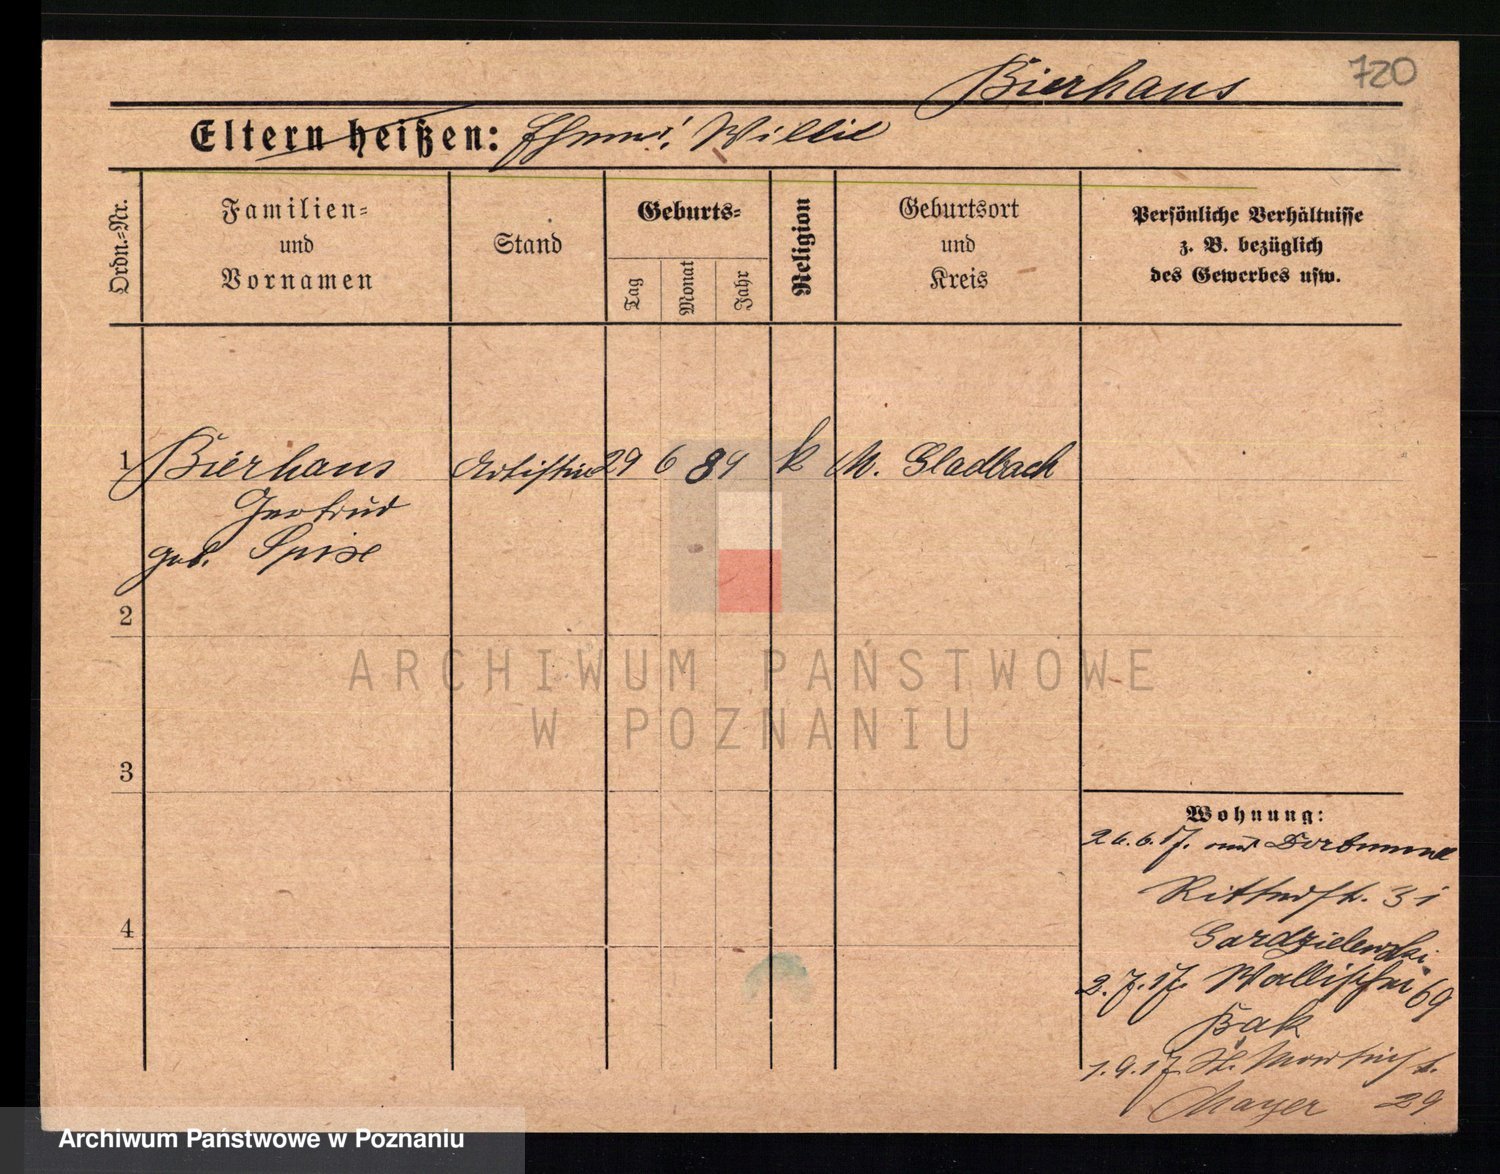 720
Bierhaus
Eltern heißen: Ehem: Willi
Ordn.-Nr.
Familien-
und
Vornamen
Stand
Geburts-
Tag
Monat
Jahr
Religion
Geburtsort
und
Kreis
Persönliche Verhältnisse
z. B. bezüglich
des Gewerbes usw.
1 Bierhaus Artistin 29 6 89 k M. Gladbach
Gertrud
geb. Spise
2
3
4
Wohnung:
26.6.17. aus Dortmund
Ritterstr. 31
Gardzielewski
2.7.17. Wallischei 69
Bak
1.9.17 St. Martinst.
Mayer 29
ARCHIWUM PAŃSTWOWE
W POZNANIU
Archiwum Państwowe w Poznaniu